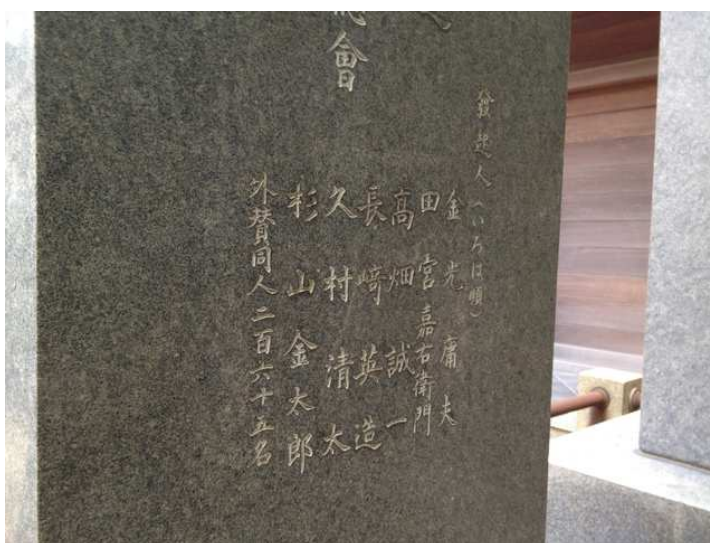 會
發起人（いろは順）
金光庸夫
田宮嘉右衛門
高畑誠一
長﨑英造
久村清太
杉山金太郎
外賛同人二百六十五名